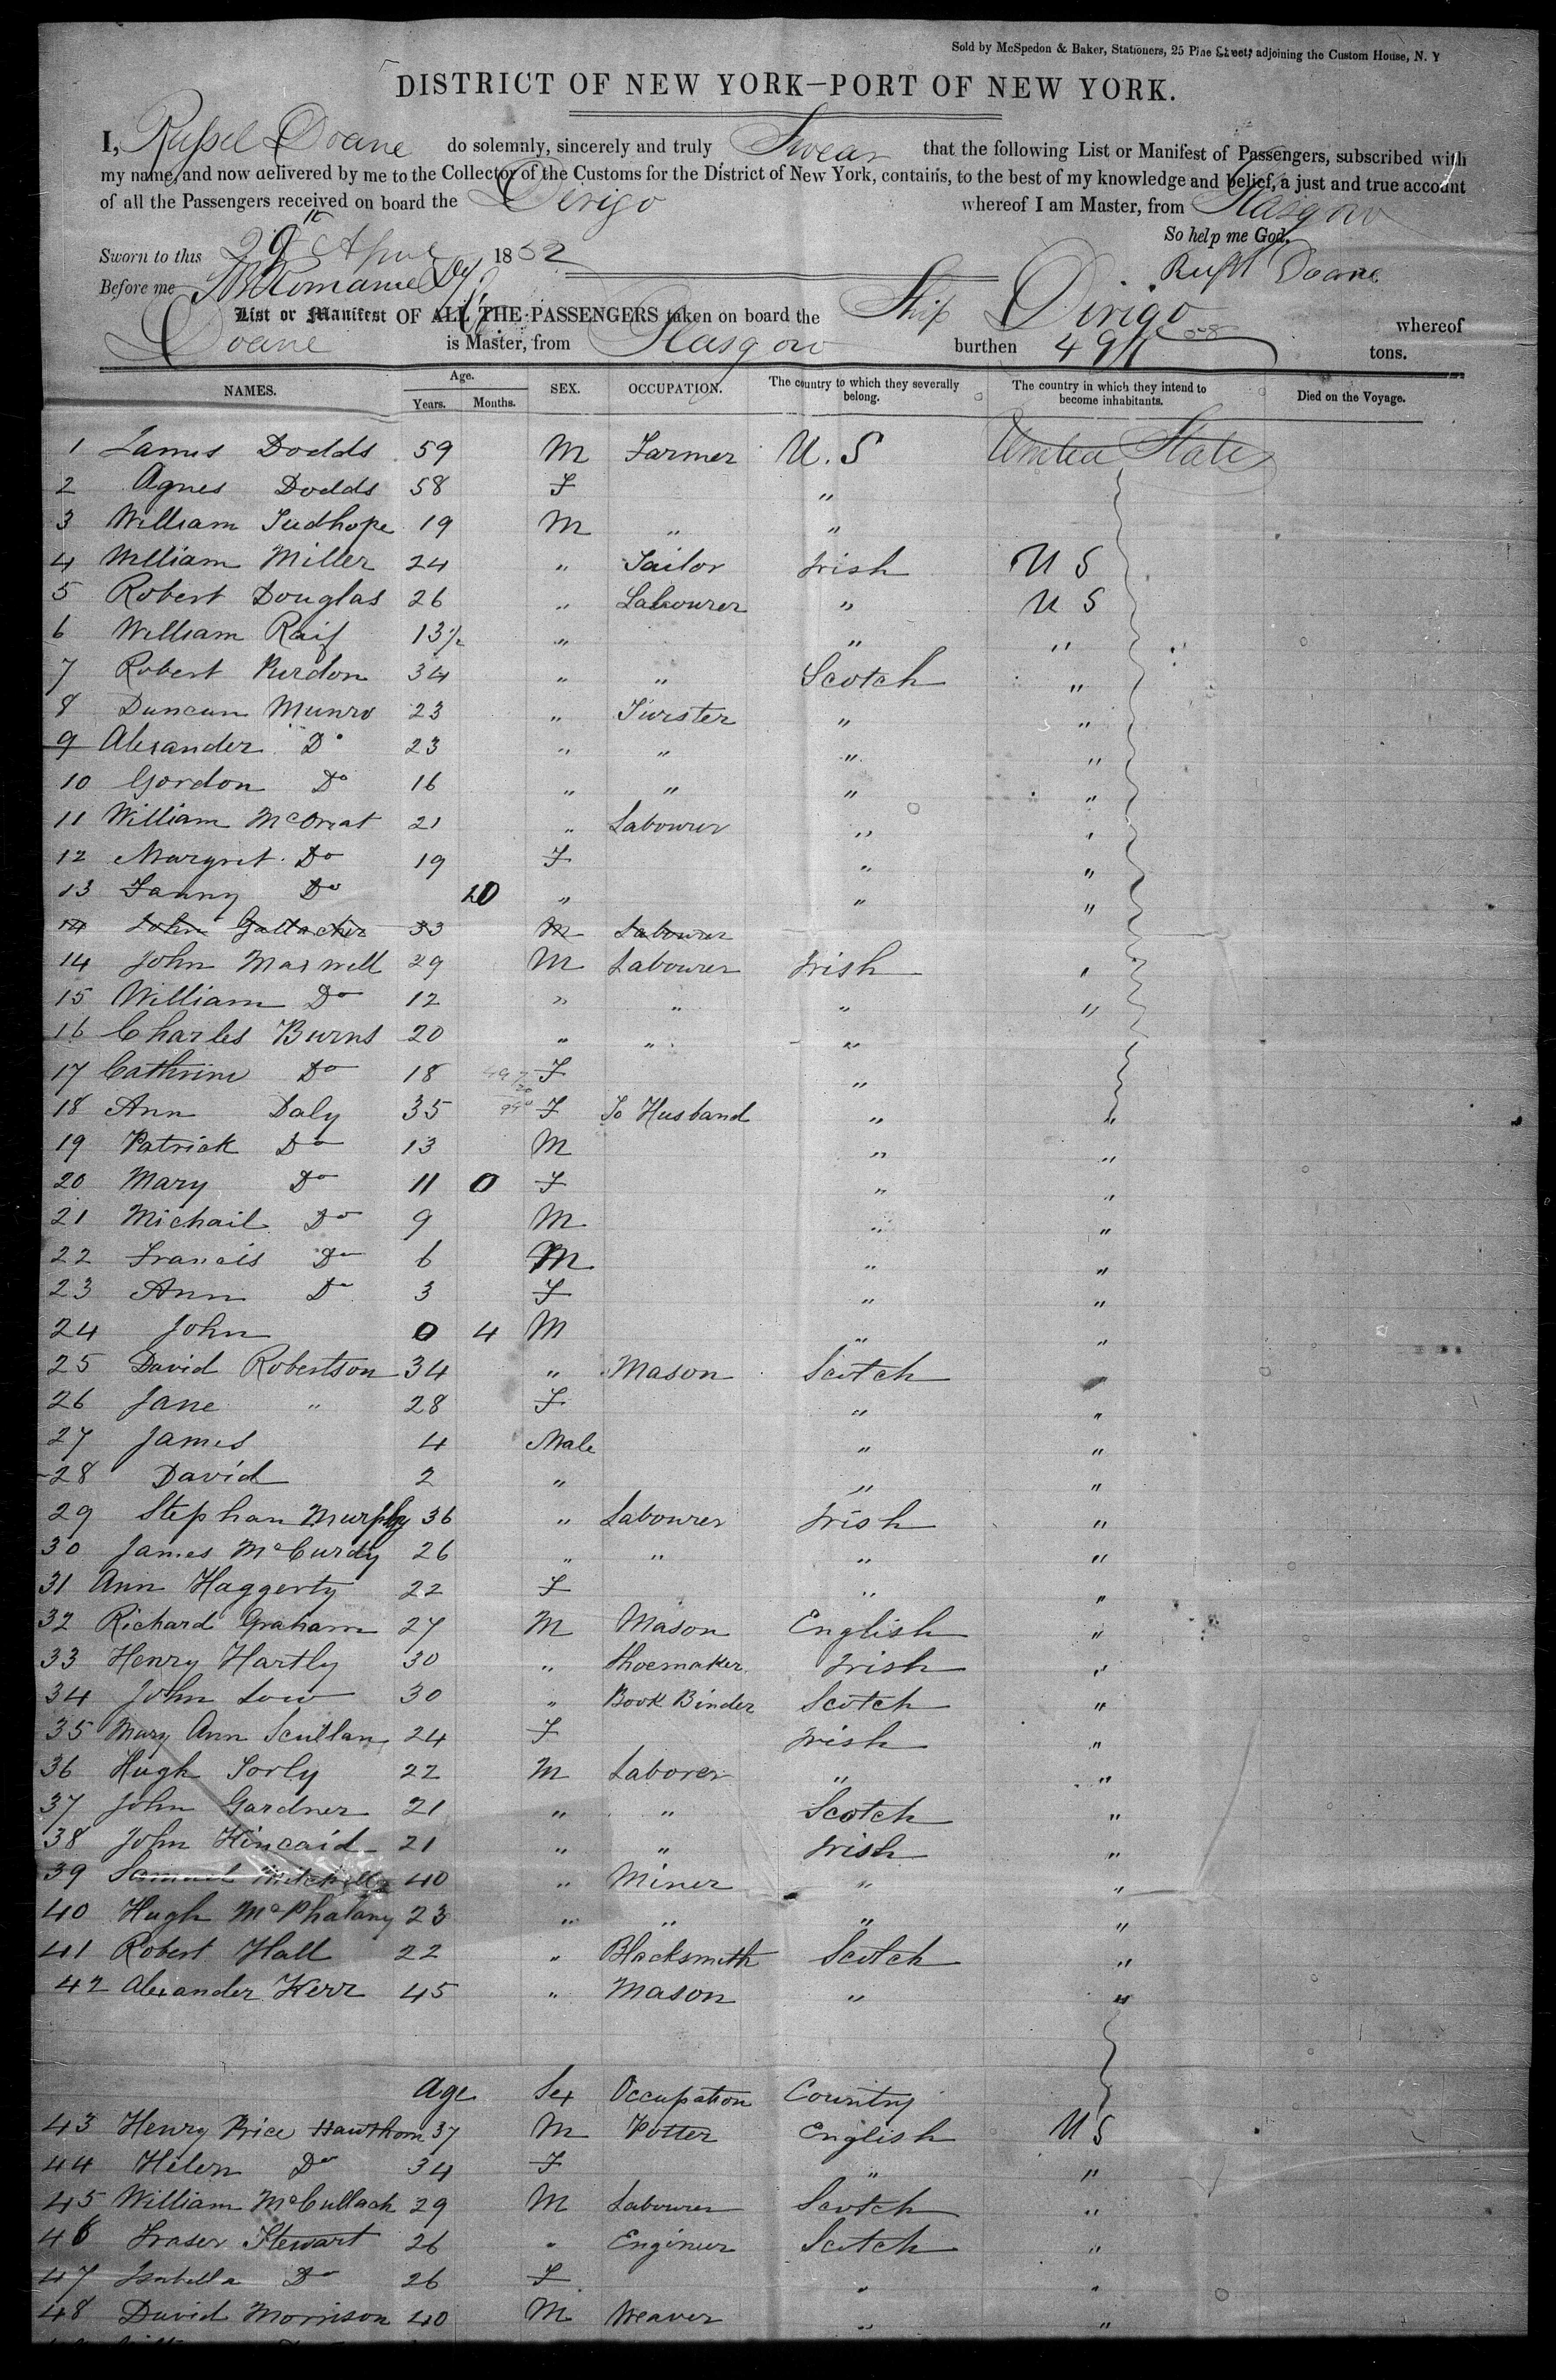 Sold by McSpedon & Baker, Stationers, 25 Pine Street, adjoining the Custom House, N. Y
DISTRICT OF NEW YORK—PORT OF NEW YORK.
I, Russel Doane do solemnly, sincerely and truly Swear that the following List or Manifest of Passengers, subscribed with
my name, and now delivered by me to the Collector of the Customs for the District of New York, contains, to the best of my knowledge and belief, a just and true account
of all the Passengers received on board the Dirigo whereof I am Master, from Glasgow
So help me God.
Sworn to this 29th April 1852
Russl Doane
Before me
List or Manifest OF ALL THE PASSENGERS taken on board the Ship Dirigo whereof
Doane is Master, from Glasgow burthen tons.
NAMES. Age. Years. Months. SEX. OCCUPATION. The country to which they severally belong. The country in which they intend to become inhabitants. Died on the Voyage.
1 James Dodds 59 M Farmer U. S United States
2 Agnes Dodds 58 F "
3 William Tudhope 19 M " "
4 William Miller 24 " Tailor Irish U S
5 Robert Douglas 26 " Labourer " U S
6 William 13½ " " "
7 Robert Purdon 34 " " Scotch "
8 Duncan Munro 23 " " "
9 Alexander Do 23 " " " "
10 Gordon Do 16 " " " "
11 William 21 " Labourer " "
12 Margret Do 19 F " "
13 Fanny Do 10 " " "
14 John Gallacher 33 M Labourer
14 John Maxwell 29 M Labourer Irish "
15 William Do 12 " " " "
16 Charles Burns 20 " " "
17 Cathrine Do 18 F "
18 Ann Daly 35 F To Husband " "
19 Patrick Do 13 M " "
20 Mary Do 11 0 F " "
21 Michail Do 9 M " "
22 Francis Do 6 M " "
23 Ann Do 3 F " "
24 John 0 4 M " "
25 David Robertson 34 " Mason Scotch "
26 Jane " 28 F " "
27 James 4 Male " "
28 David 2 " " "
29 Stephan Murphy 36 " Labourer Irish "
30 James McCurdy 26 " " " "
31 Ann Haggerty 22 F " "
32 Richard Graham 27 M Mason English "
33 Henry Hartly 30 " Shoemaker Irish "
34 John Low 30 " Book Binder Scotch "
35 Mary Ann Scullan 24 F Irish "
36 Hugh Sorly 22 M Laborer " "
37 John Gardner 21 " " Scotch "
38 John Kincaid 21 " " Irish "
39 Samuel Mitchell 40 " Miner " "
40 Hugh McPhalany 23 " " " "
41 Robert Hall 22 " Blacksmith Scotch "
42 Alexander Kerr 45 " Mason " "
Age Sex Occupation Country
43 Henry Price Hawthorn 37 M Potter English U S
44 Helen Do 34 F " "
45 William McCullach 29 M Labourer Scotch "
46 Fraser Stewart 26 " Engineer Scotch "
47 Isabella Do 26 F " "
48 David Morrison 40 M Weaver " "